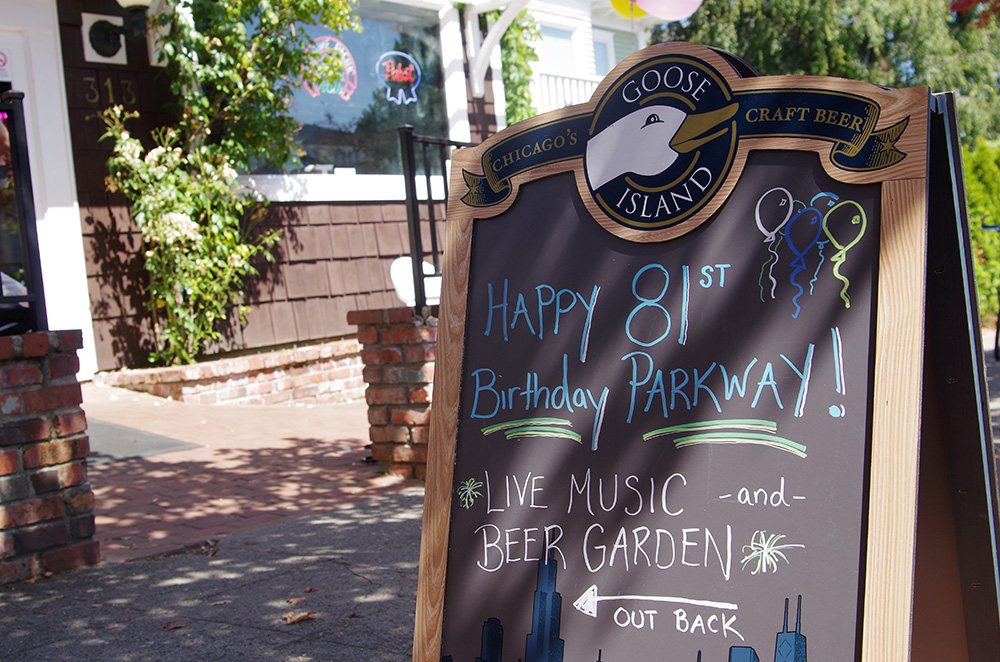 313
Pabst
GOOSE
CHICAGO'S CRAFT BEER
ISLAND
HAPPY 81ST
Birthday PARKWAY!
LIVE MUSIC -and-
BEER GARDEN
OUT BACK